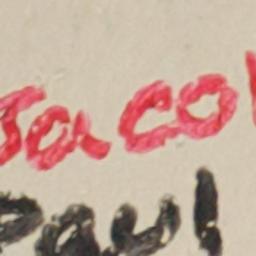 Jacob
Paul